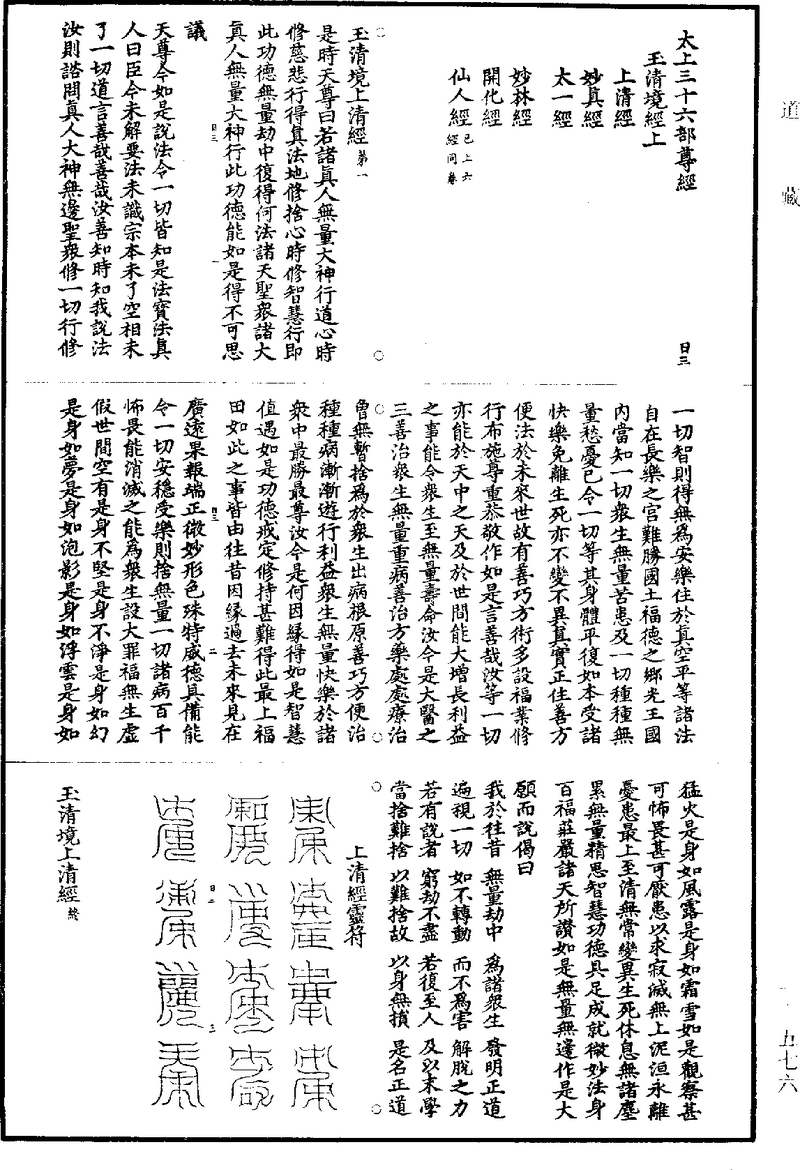 道藏
太上三十六部尊經
日三
玉清境經上
上清經
妙真經
太一經
妙林經
開化經
仙人經 已上六經同卷
玉清境上清經 第一
是時天尊曰若諸真人無量大神行道心時
修慈悲行得真法地修捨心時修智慧行即
此功德無量劫中復得何法諸天聖眾諸大
真人無量大神行此功德能如是得不可思
議
日三 一
天尊今如是說法令一切皆知是法寶法真
人曰臣今未解要法未識宗本未了空相未
了一切道言善哉善哉汝善知時知我說法
汝則諮問真人大神無邊聖眾修一切行修
一切智則得無為安樂住於真空平等諸法
自在長樂之宮難勝國土福德之鄉光王國
內當知一切眾生無量苦患及一切種種無
量愁憂已令一切等其身體平復如本受諸
快樂免離生死亦不變不異真實正住善方
便法於未來世故有善巧方術多設福業修
行布施尊重恭敬作如是言善哉汝等一切
亦能於天中之天及於世間能大增長利益
之事能令眾生至無量壽命汝今是大醫之
三善治眾生無量重病善治方藥處處療治
曾無暫捨為於眾生出病根原善巧方便治
種種病漸漸遊行利益眾生無量快樂於諸
眾中最勝最尊汝今是何因緣得如是智慧
值遇如是功德戒定修持甚難得此最上福
田如此之事皆由往昔因緣過去未來見在
日三 二
廣遠果報端正微妙形色殊特威德具備能
令一切安穩受樂則捨無量一切諸病百千
怖畏能消滅之能為眾生設大罪福無生虛
假世間空有是身不堅是身不淨是身如幻
是身如夢是身如泡影是身如浮雲是身如
猛火是身如風露是身如霜雪如是觀察甚
可怖畏甚可厭患以求寂滅無上泥洹永離
憂患最上至清無常變異生死休息無諸塵
累無量精思智慧功德具足成就微妙法身
百福莊嚴諸天所讚如是無量無邊作是大
願而說偈曰
我於往昔 無量劫中 為諸眾生 發明正道
遍視一切 如不轉動 而不為害 解脫之力
若有說者 窮劫不盡 若復至人 及以末學
當捨難捨 以難捨故 以身無損 是名正道
上清經靈符
日三 三
玉清境上清經 終
五七六